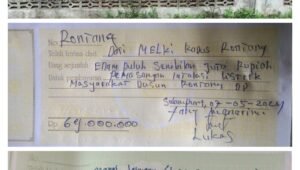 No. Roniana
Telah terima dari Dri MELKi Kadus Roniang
Uang sejumlah Enam Puluh Sembilan Juta Rupiah
Untuk pembayaran Pemasangan instalasi Listrik
Masyarakat Dusun Roniang DP
07-05-2021
Yang menerima
Lukas
Rp 69.000.000